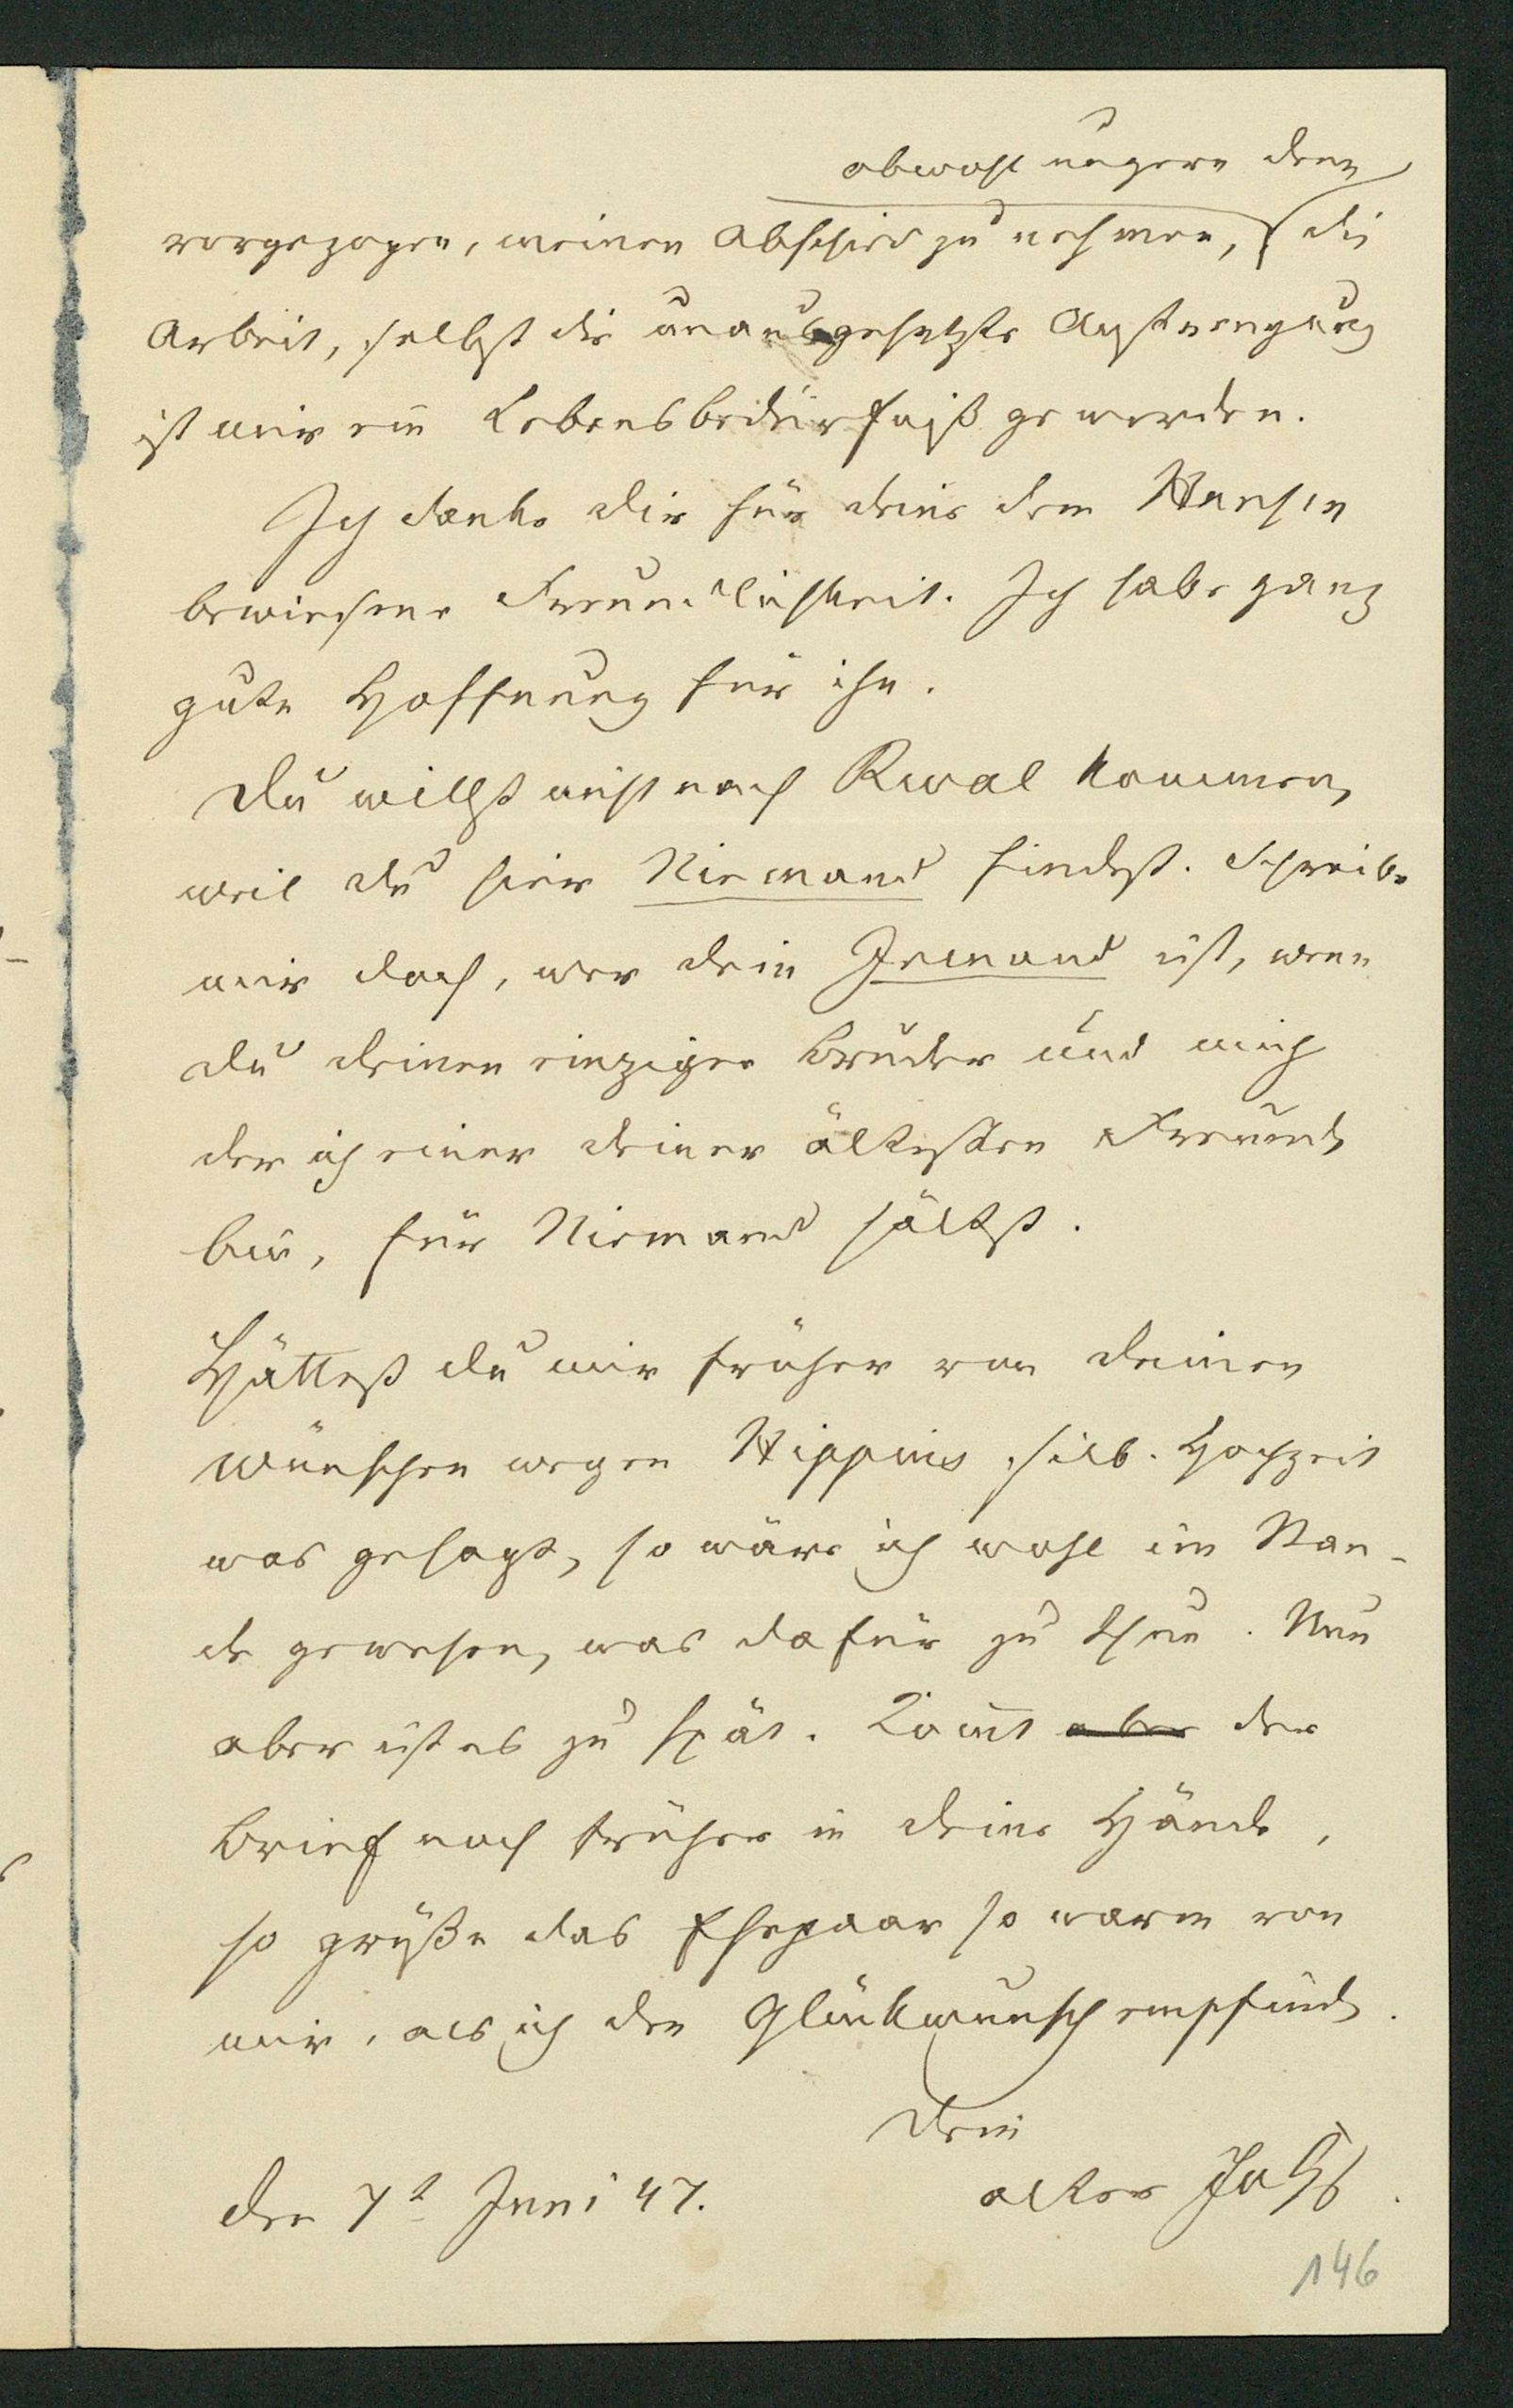 obwohl ungern denn
vorgezogen, meinen Abschied zu nehmen, die
Arbeit, selbst die unausgesetzte Anstrengung
ist mir ein Lebensbedürfniß geworden.
Ich danke dir für deine dem Hansen
bewiesene Freundlichkeit. Ich habe ganz
gute Hoffnung für ihn.
Du willst nicht nach Reval kommen,
weil du hier Niemand findest. Schreibe
mir doch, wer dein Jemand ist, wenn
du deinen einzigen Bruder und mich
der ich einer deiner ältesten Freunde
bin, für Niemand hältst.
Hättest du mir früher von deinen
Wünschen wegen Hippius silb. Hochzeit
was gesagt, so wäre ich wohl im Stan-
de gewesen, was dafür zu thun. Nun
aber ist es zu spät. Kom̅t aber der
Brief noch früher in deine Hände,
so grüße das Ehepaar so warm von
mir, als ich den Glückwunsch empfinde.
Dein
den 7t Juni 47. alter
146